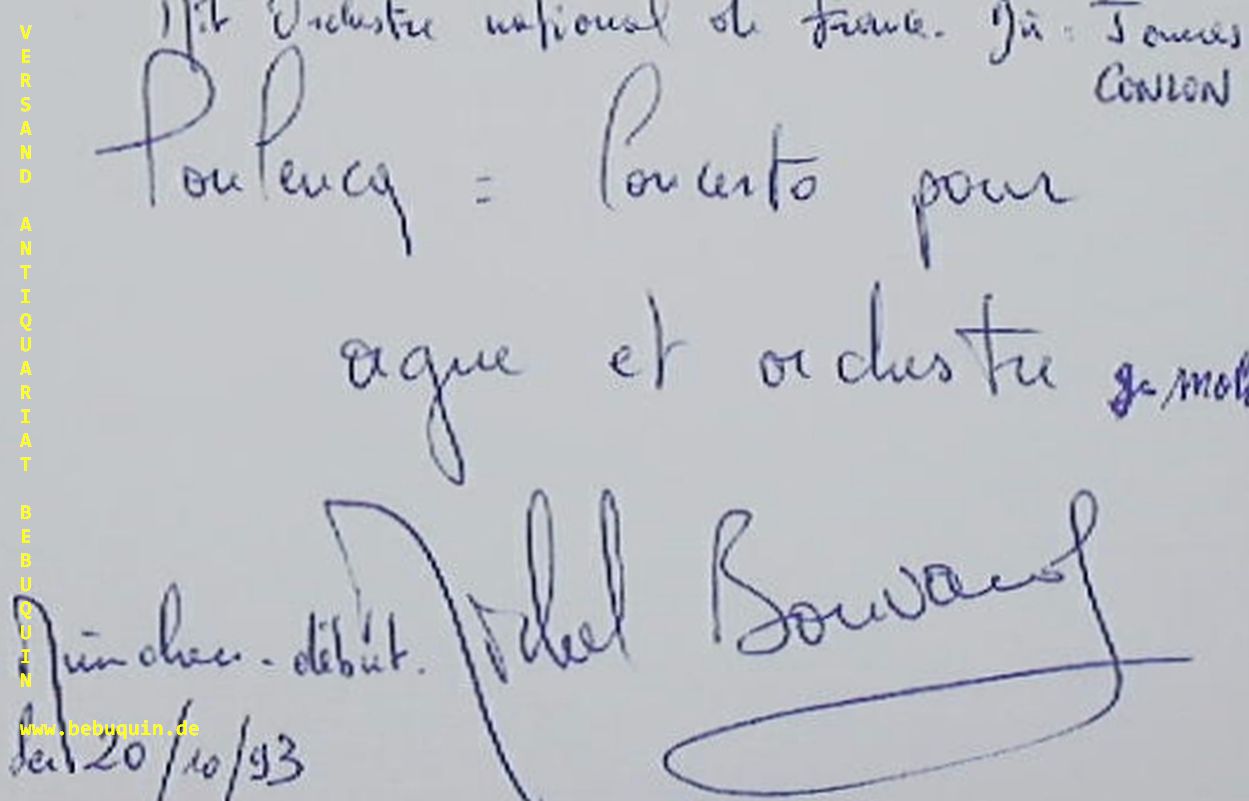 Mit Orchestre national de France. Dir: James
CONLON
Poulencq = Concerto pour
orgue et orchestre g-moll
Michel Bouvard
München - début.
den 20/10/93
VERSAND ANTIQUARIAT BEBUQUIN
www.bebuquin.de